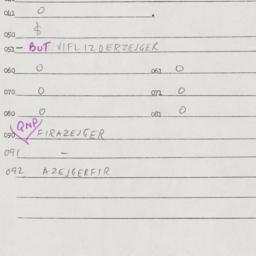 041 0
050 $
052 - BUT VIFLIZDERZEJGER
060 0 061 0
070 0 072 0
080 0 081 0
QNP
090 FIRAZEJGER
091 -
092 AZEJGERFIR